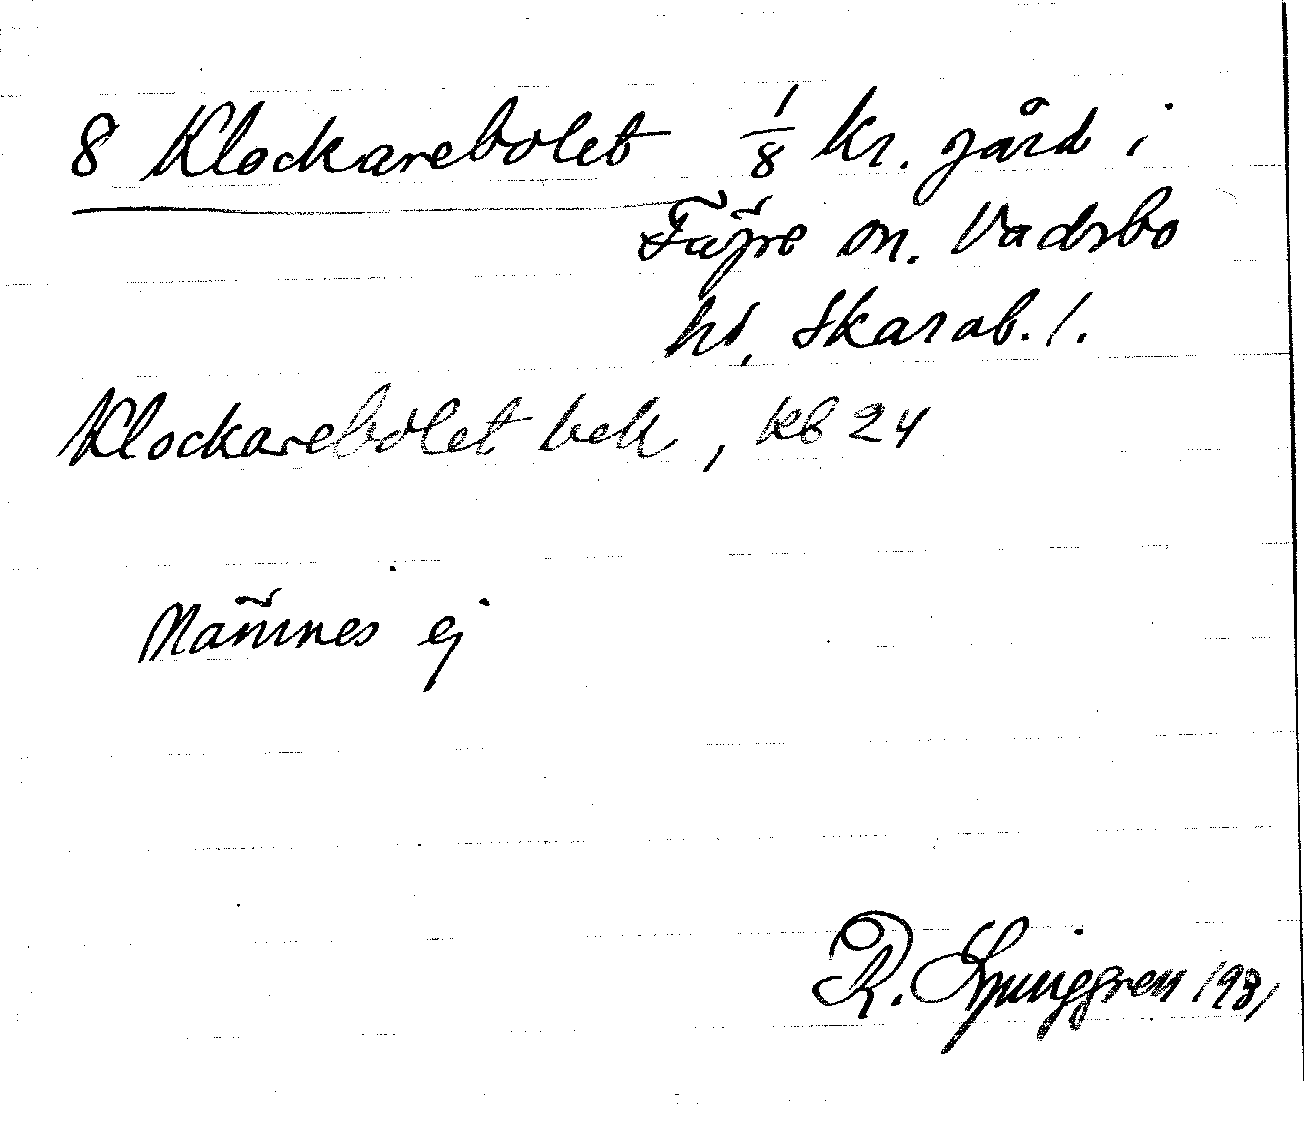 8 Klockarebolet 1/8 kr. gård i
Fägre sn. Vadsbo
hd, Skarab. l.
Klockarebolet bek, kb 24
Nämnes ej
R. Ljunggren 1931